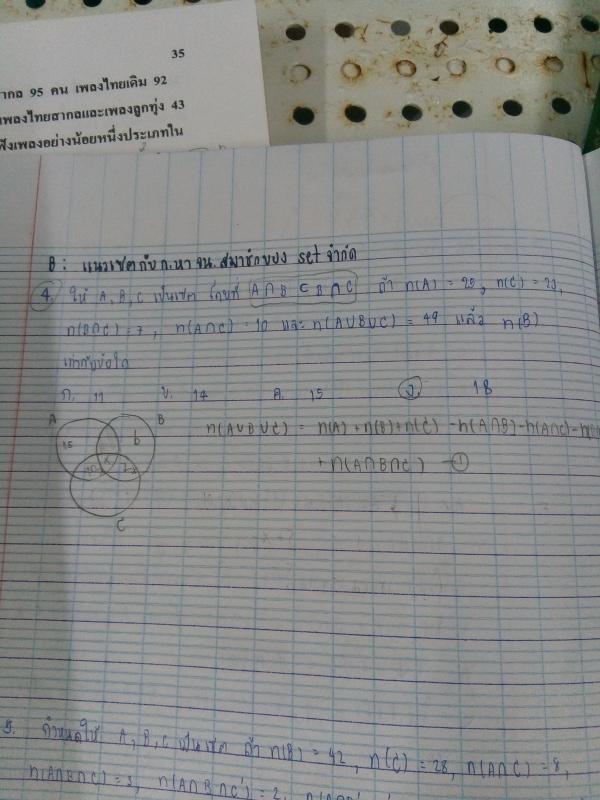 35
ากล 95 คน เพลงไทยเดิม 92
เพลงไทยสากลและเพลงลูกทุ่ง 43
ฟังเพลงอย่างน้อยหนึ่งประเภทใน
B : แนวเซตกับ ก.หา จน. สมาชิกของ set จำกัด
4. ให้ A, B, C เป็นเซต โดยที่ A∩B ⊂ B∩C ถ้า n(A) = 25, n(C) = 23,
n(B∩C) = 7, n(A∩C) = 10 และ n(A∪B∪C) = 49 แล้ว n(B)
เท่ากับข้อใด
ก. 11 ข. 14 ค. 15 ง. 18
A B
15 b
n(A∪B∪C) = n(A) + n(B) + n(C) - n(A∩B) - n(A∩C) -
+ n(A∩B∩C) - ①
C
5. กำหนดให้ A, B, C เป็นเซต ถ้า n(B) = 42, n(C) = 28, n(A∩C) = 8,
n(A∩B∩C) = 3, n(A∩B∩C') = 2,